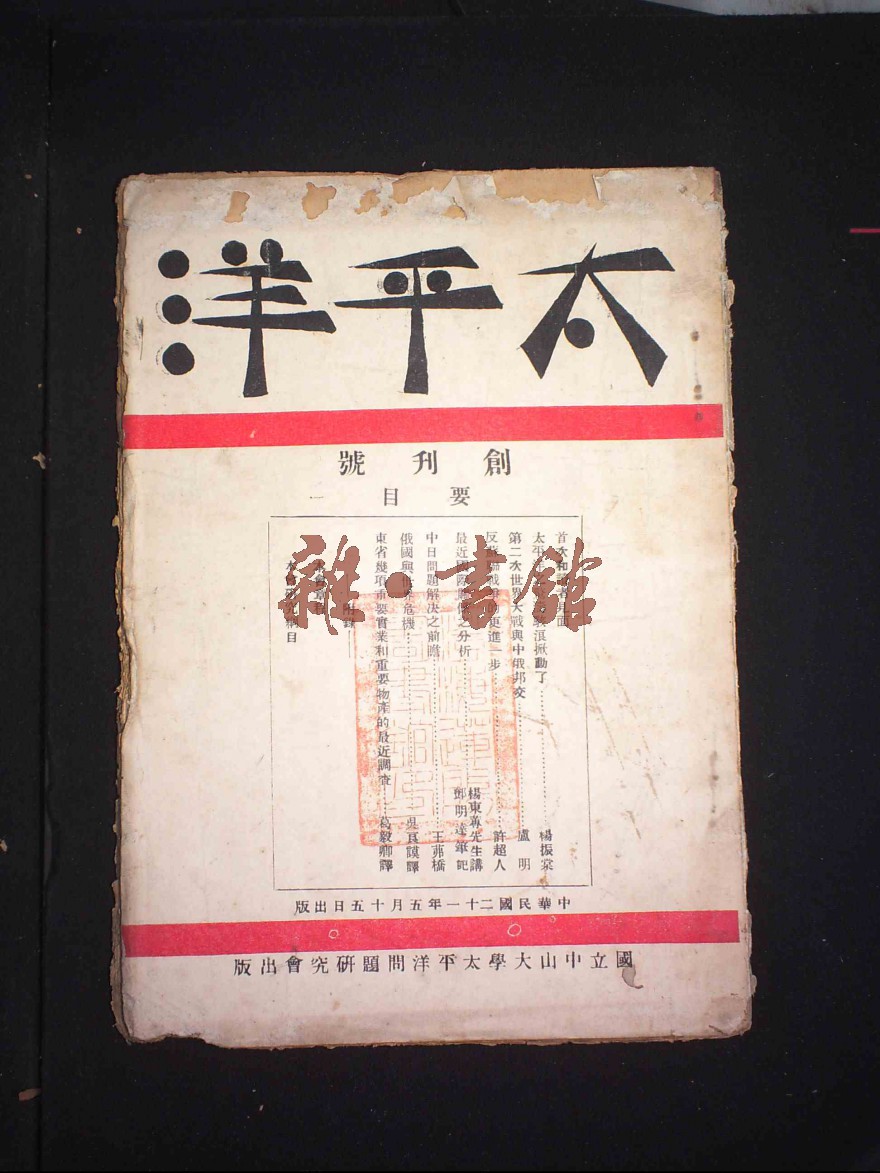 太平洋
創刊號
要目一
首次和讀者見面
太平洋
掀動了……楊振棠
第二次世界大戰與中俄邦交……盧明
更進一步……許超人
最近國際
之分析……楊東蓴先生講
鄧明達筆記
中日問題解決之前瞻……王茆橋
俄國與世界危機……吳良謨譯
東省幾項重要實業和重要物產的最近調查……葛毅卿譯
附錄
本會章程
本會研究綱目
中華民國二十一年五月十五日出版
國立中山大學太平洋問題研究會出版
雜·書館